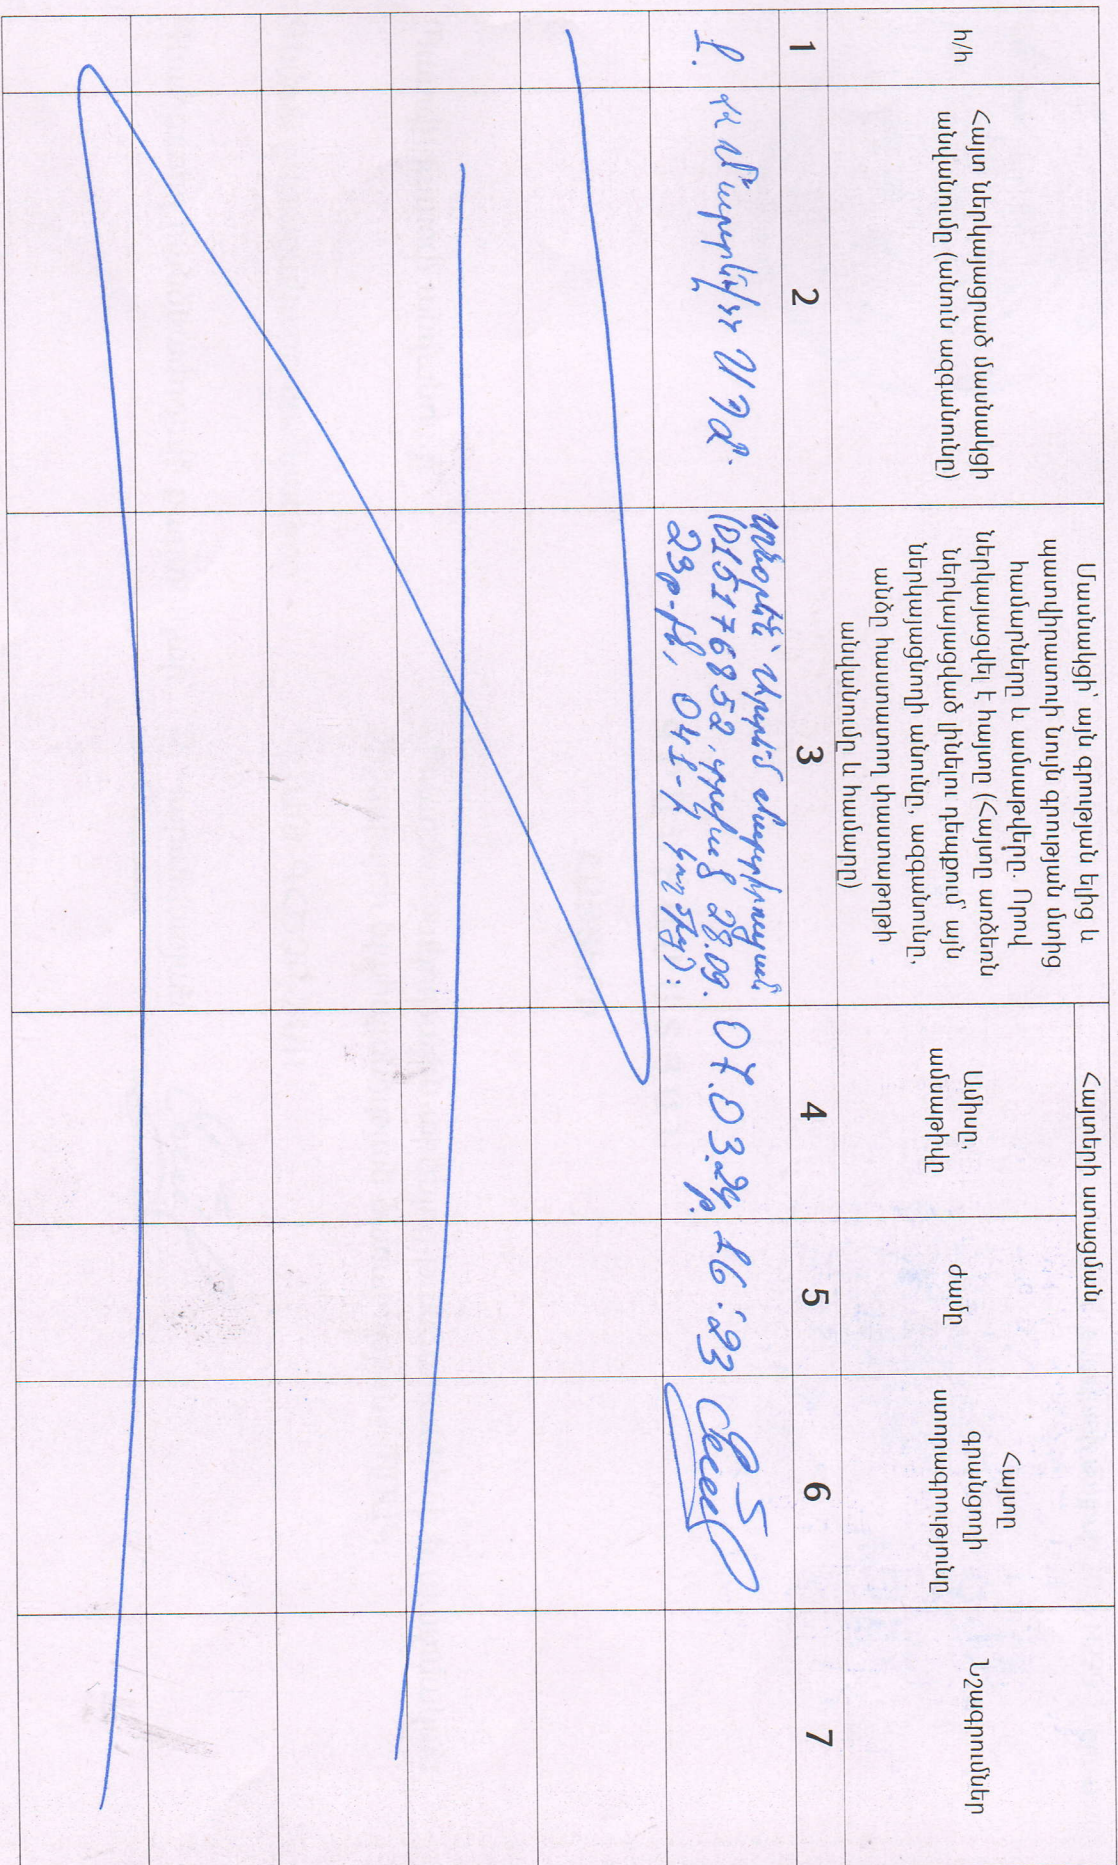 հ/հ
Հայտ ներկայացրած մասնակցի
անվանումը (անուն ազգանունը)
Մասնակցի՝ այն գրության ելից և
մտից նույն գրության հաստատիկատա
համարները և ամսաթիվը. Որով
ներկայացվել է հայտը (Հայտը առձեռն
ներկայացված լինելու դեպքում այն
ներկայացնողի անունը, ազգանունը,
անձը հաստատող փաստաթղթի
անվանումը և համարը)
Հայտերի ստացման
Ամիսը,
ամսաթիվը
ժամը
Հայտը
վերցնողի
ստորագրությունը
Նշագրումներ
1
2
3
4
5
6
7
1.
ՍՊԸ
(015176852, տրված 28.09.
23թ-ին, 041-ի կողմից):
07.03.24թ.
16:23